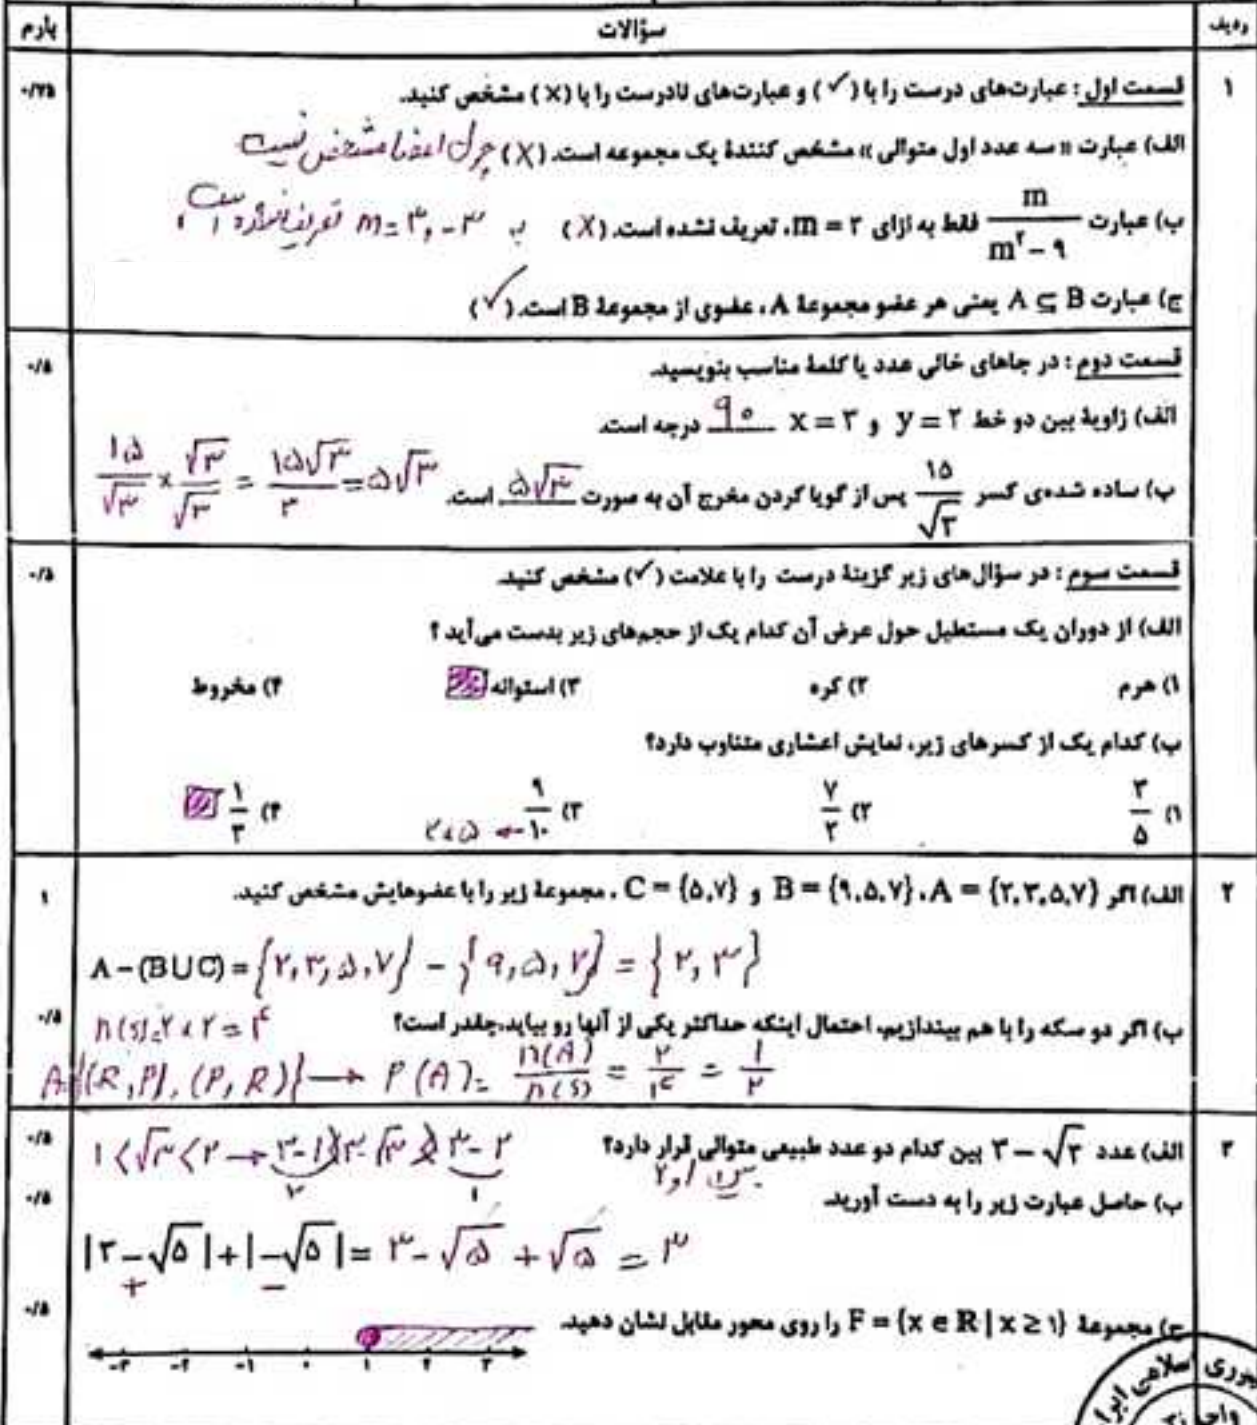 ردیف سؤالات بارم
۱ قسمت اول : عبارت‌های درست را با (✓) و عبارت‌های نادرست را با (×) مشخص کنید. ۰/۷۵
الف) عبارت «سه عدد اول متوالی» مشخص کنندهٔ یک مجموعه است. (X) چون اعضا مشخص نیست
ب) عبارت m/(m²-۹) فقط به ازای m = ۳، تعریف نشده است. (X) به m=۳,-۳ تعریف نشده است
ج) عبارت A ⊆ B یعنی هر عضو مجموعهٔ A، عضوی از مجموعهٔ B است. (✓)
قسمت دوم : در جاهای خالی عدد یا کلمهٔ مناسب بنویسید. ۰/۵
الف) زاویهٔ بین دو خط y = ۲ و x = ۳ ۹۰ درجه است.
ب) ساده شده‌ی کسر ۱۵/√۳ پس از گویا کردن مخرج آن به صورت ۵√۳ است. ۱۵/√۳ × √۳/√۳ = ۱۵√۳/۳ = ۵√۳
قسمت سوم : در سؤال‌های زیر گزینهٔ درست را با علامت (✓) مشخص کنید. ۰/۵
الف) از دوران یک مستطیل حول عرض آن کدام یک از حجم‌های زیر بدست می‌آید ؟
۱) هرم ۲) کره ۳) استوانه ۴) مخروط
ب) کدام یک از کسرهای زیر، نمایش اعشاری متناوب دارد؟
۱) ۳/۵ ۲) ۷/۲ ۳) ۹/۱۰ ← ۲×۵ ۴) ۱/۳
۲ الف) اگر A = {۲,۳,۵,۷}، B = {۹,۵,۷} و C = {۵,۷}، مجموعهٔ زیر را با عضوهایش مشخص کنید. ۱
A-(B∪C) = {۲,۳,۵,۷} - {۹,۵,۷} = {۲,۳}
ب) اگر دو سکه را با هم بیندازیم، احتمال اینکه حداکثر یکی از آنها رو بیاید،چقدر است؟ n(s)=۲×۲=۴ ۰/۵
A={(R,P),(P,R)} → P(A)= n(A)/n(s) = ۲/۴ = ۱/۲
۳ الف) عدد ۳-√۳ بین کدام دو عدد طبیعی متوالی قرار دارد؟ ۱<√۳<۲ → ۳-۱>۳-√۳>۳-۲ ۰/۵
بین ۱و۲ ۲ ۱
ب) حاصل عبارت زیر را به دست آورید. ۰/۵
|۳-√۵|+|-√۵|= ۳-√۵+√۵ = ۳
+ -
ج) مجموعهٔ F = {x ∈ R | x ≥ ۱} را روی محور مقابل نشان دهید. ۰/۵
-۳ -۲ -۱ ۰ ۱ ۲ ۳
اسلامی